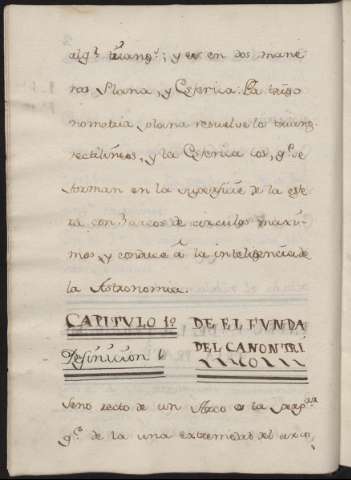 algⁿ triangº; y es en dos mane
ras Plana, y Esferica. La trigo
nometria plana resuelve los triang.
rectilineos, y la Esferica los, qᵉ se
forman en la superficie de la esfe
ra con 3 arcos de circulos maxi-
mos, y conduce à la inteligencia de
la Astronomia.
CAPITULO 1º DE EL FUNDA
DEL CANON TRI
Definicion 1ª
Seno recto de un Arco es la perpᵃʳ
qᵉ de la una extremidad del arco,